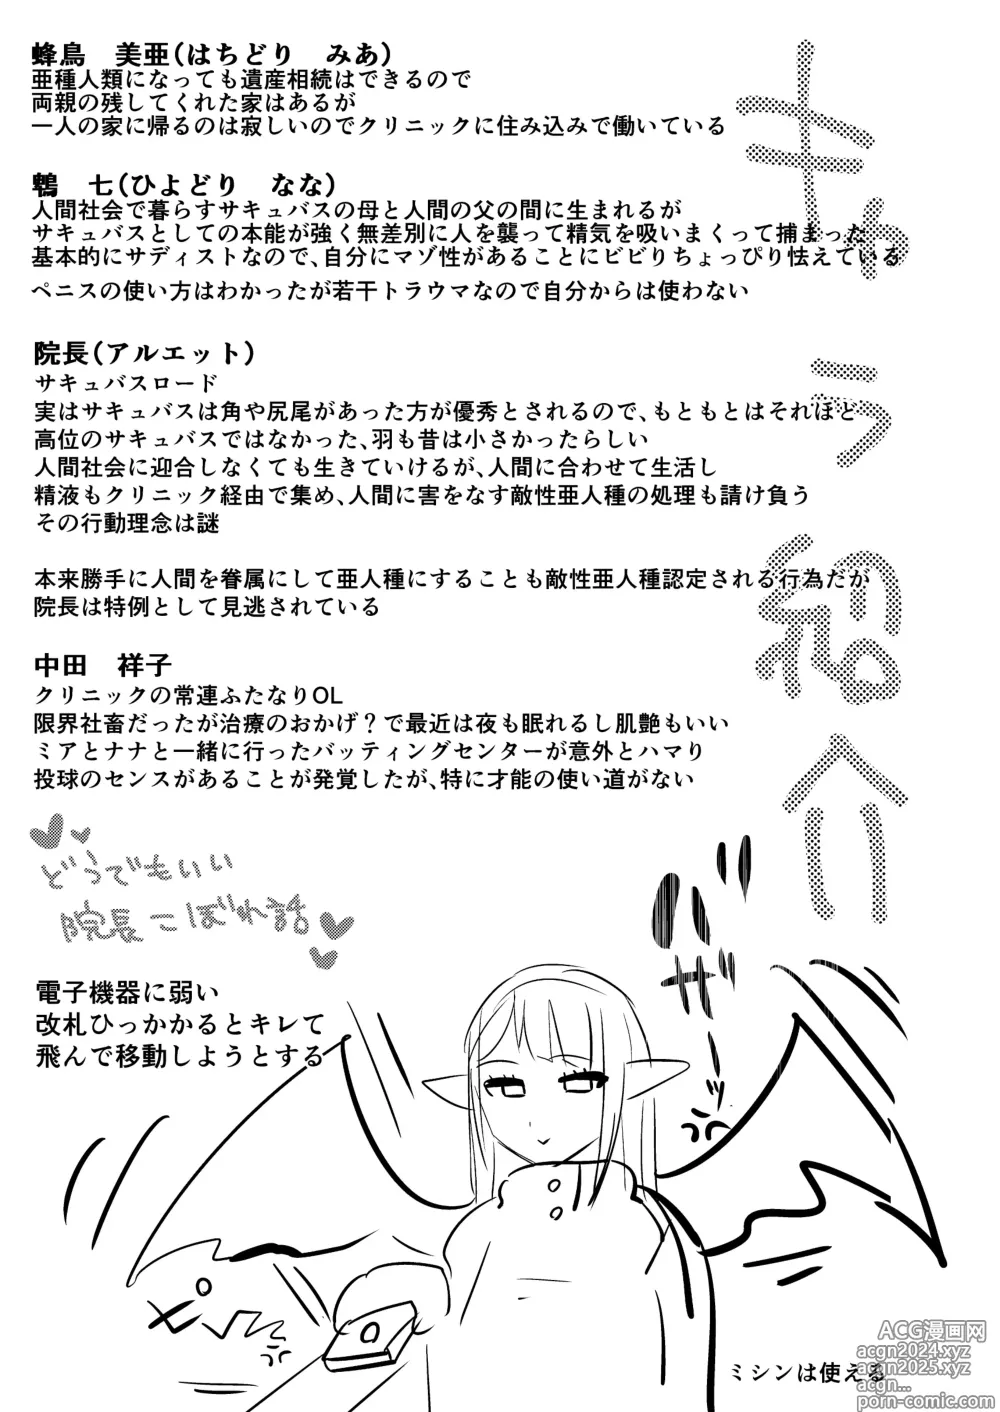 キャラ紹介
蜂鳥　美亜(はちどり　みあ)
亜種人類になっても遺産相続はできるので
両親の残してくれた家はあるが
一人の家に帰るのは寂しいのでクリニックに住み込みで働いている
鵯　七(ひよどり　なな)
人間社会で暮らすサキュバスの母と人間の父の間に生まれるが
サキュバスとしての本能が強く無差別に人を襲って精気を吸いまくって捕まった
基本的にサディストなので、自分にマゾ性があることにビビりちょっぴり怯えている
ペニスの使い方はわかったが若干トラウマなので自分からは使わない
院長(アルエット)
サキュバスロード
実はサキュバスは角や尻尾があった方が優秀とされるので、もともとはそれほど
高位のサキュバスではなかった、羽も昔は小さかったらしい
人間社会に迎合しなくても生きていけるが、人間に合わせて生活し
精液もクリニック経由で集め、人間に害をなす敵性亜人種の処理も請け負う
その行動理念は謎
本来勝手に人間を眷属にして亜人種にすることも敵性亜人種認定される行為だが
院長は特例として見逃されている
中田　祥子
クリニックの常連ふたなりOL
限界社畜だったが治療のおかげ？で最近は夜も眠れるし肌艶もいい
ミアとナナと一緒に行ったバッティングセンターが意外とハマり
投球のセンスがあることが発覚したが、特に才能の使い道がない
どうでもいい
院長こぼれ話
電子機器に弱い
改札ひっかかるとキレて
飛んで移動しようとする
バザーッ
ミシンは使える
ACG漫画网
acgn2024.xyz
acgn2025.xyz
acgn...
porn-comic.com